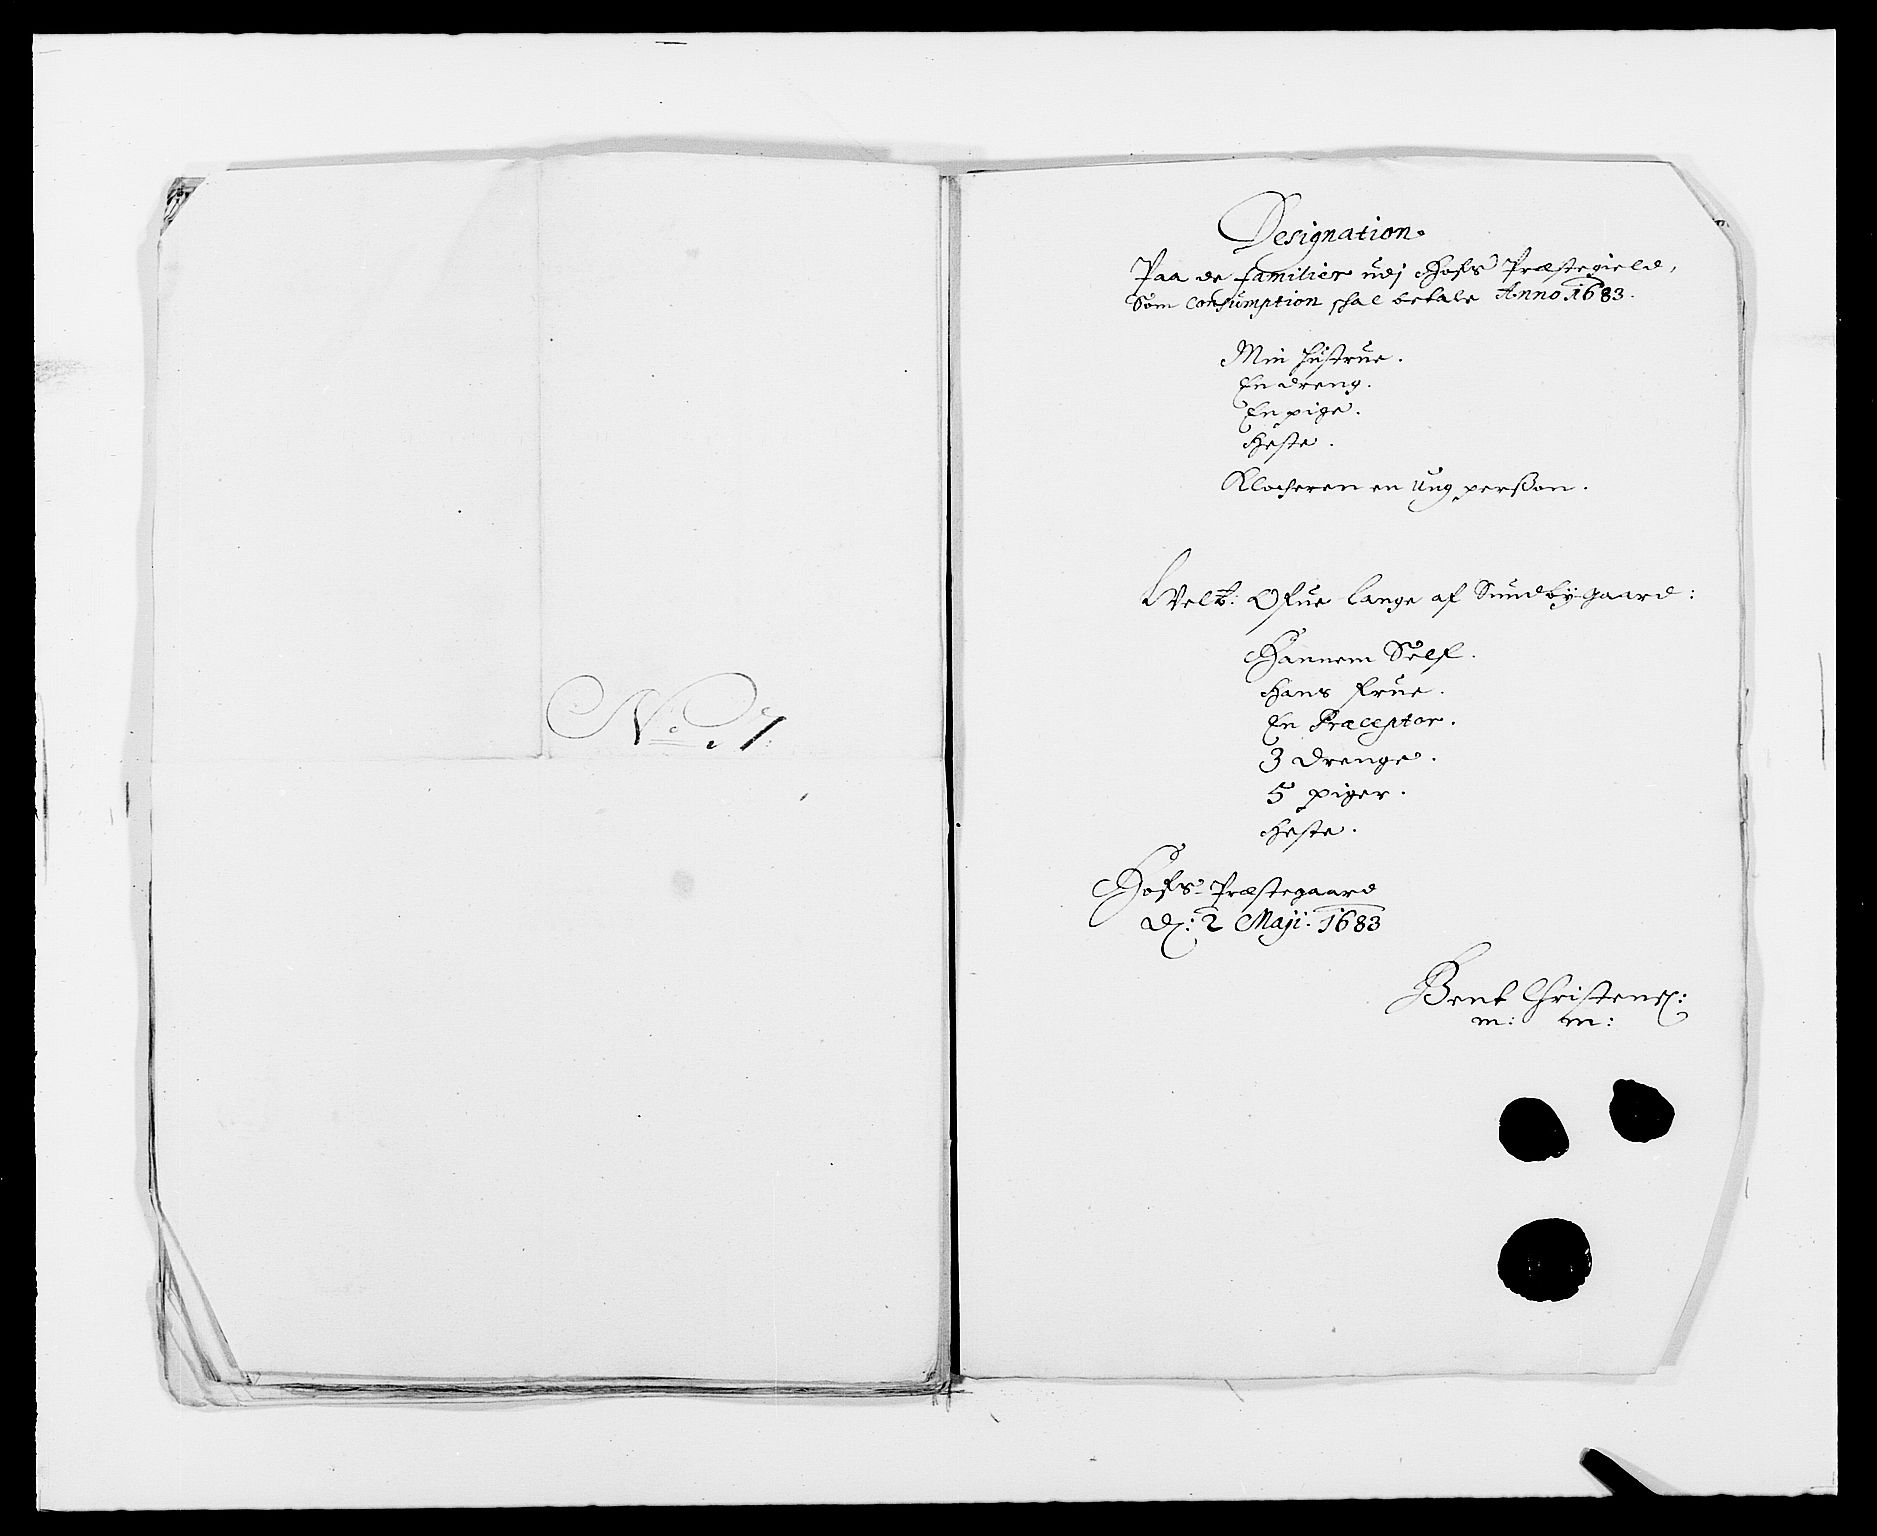 No 7:
Designation
Paa de familier udj Hofs Præstegield,
Som Consumption skal betale Anno 1683.
Min hustrue.
En dreng.
En pige.
heste.
Klockeren en Ung perßon.
Welb: Ofue Lange af Sundbÿ gaard:
Hannem Self.
hans frue.
En Præceptor.
3 drenge.
5 piger.
heste.
Hofs Præstegaard
d: 2 Maji. 1683
Bent Christens:
m: m: